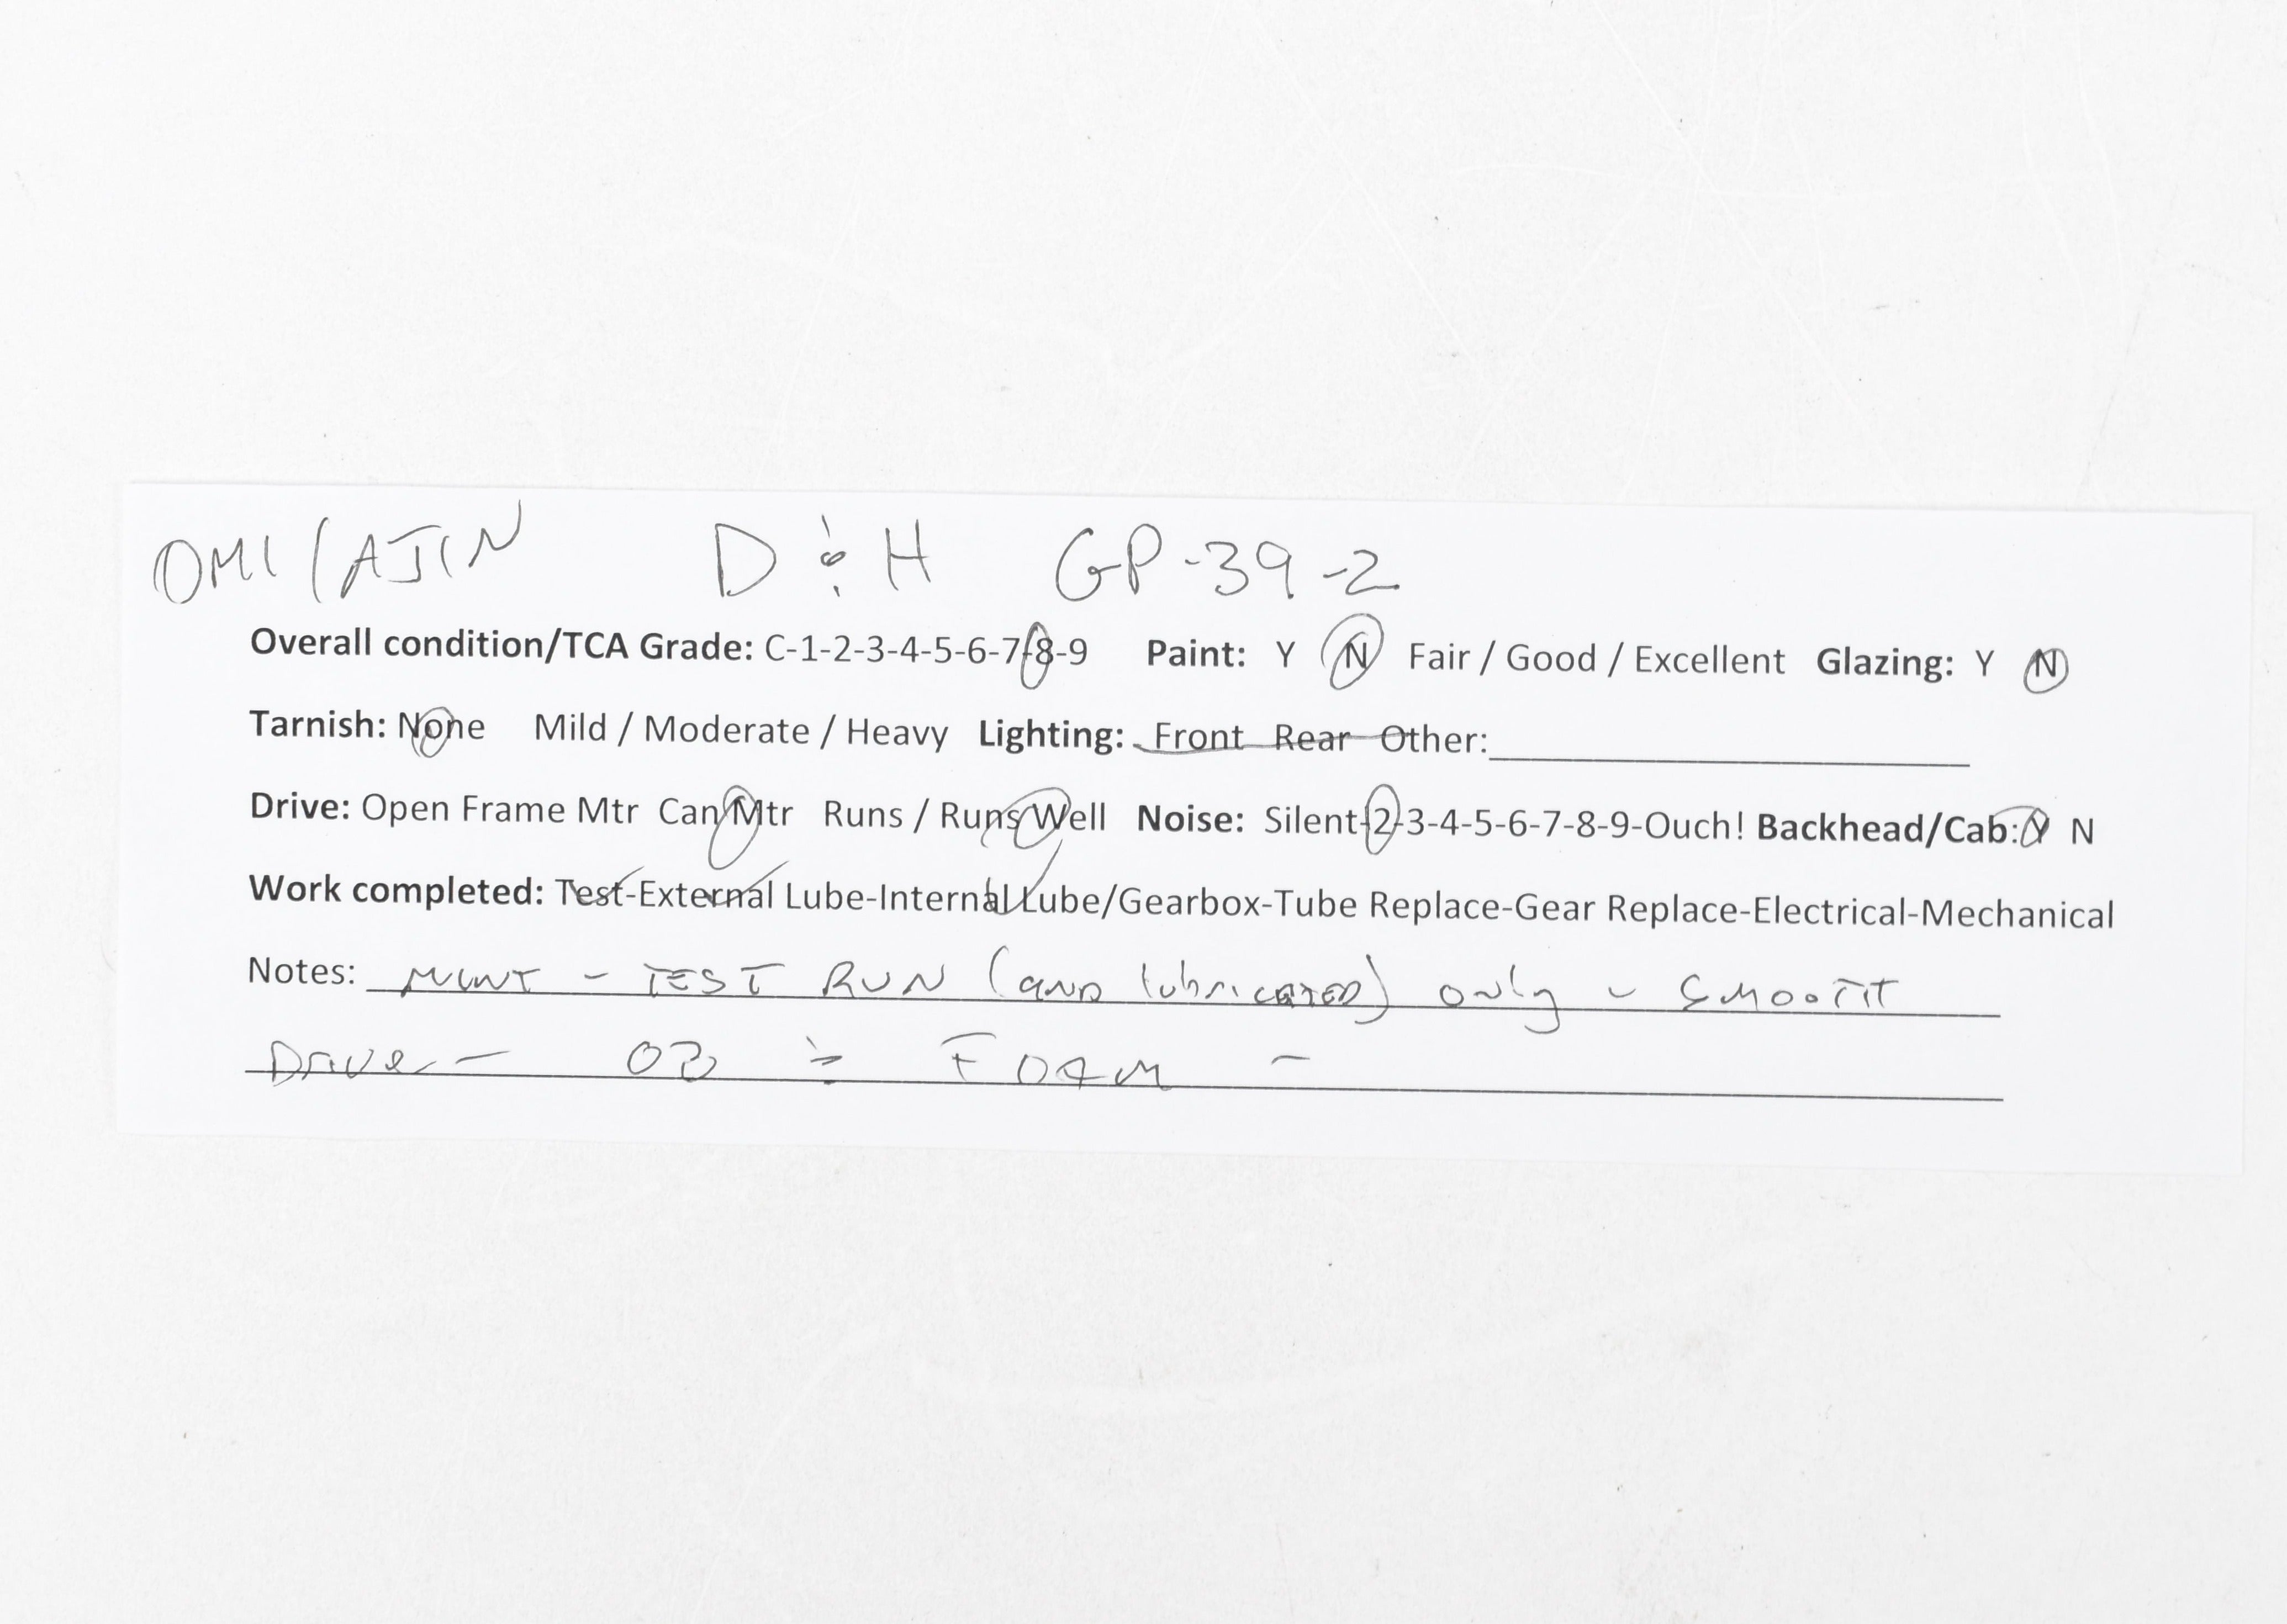 OMI/AJIN D & H GP-39-2
Overall condition/TCA Grade: C-1-2-3-4-5-6-7-8-9 Paint: Y N Fair / Good / Excellent Glazing: Y N
Tarnish: None Mild / Moderate / Heavy Lighting: Front Rear Other:
Drive: Open Frame Mtr Can Mtr Runs / Runs Well Noise: Silent-2-3-4-5-6-7-8-9-Ouch! Backhead/Cab: Y N
Work completed: Test-External Lube-Internal Lube/Gearbox-Tube Replace-Gear Replace-Electrical-Mechanical
Notes: MINT - TEST RUN (and lubricated) only - SMOOTH
Drive - OB & FOAM -